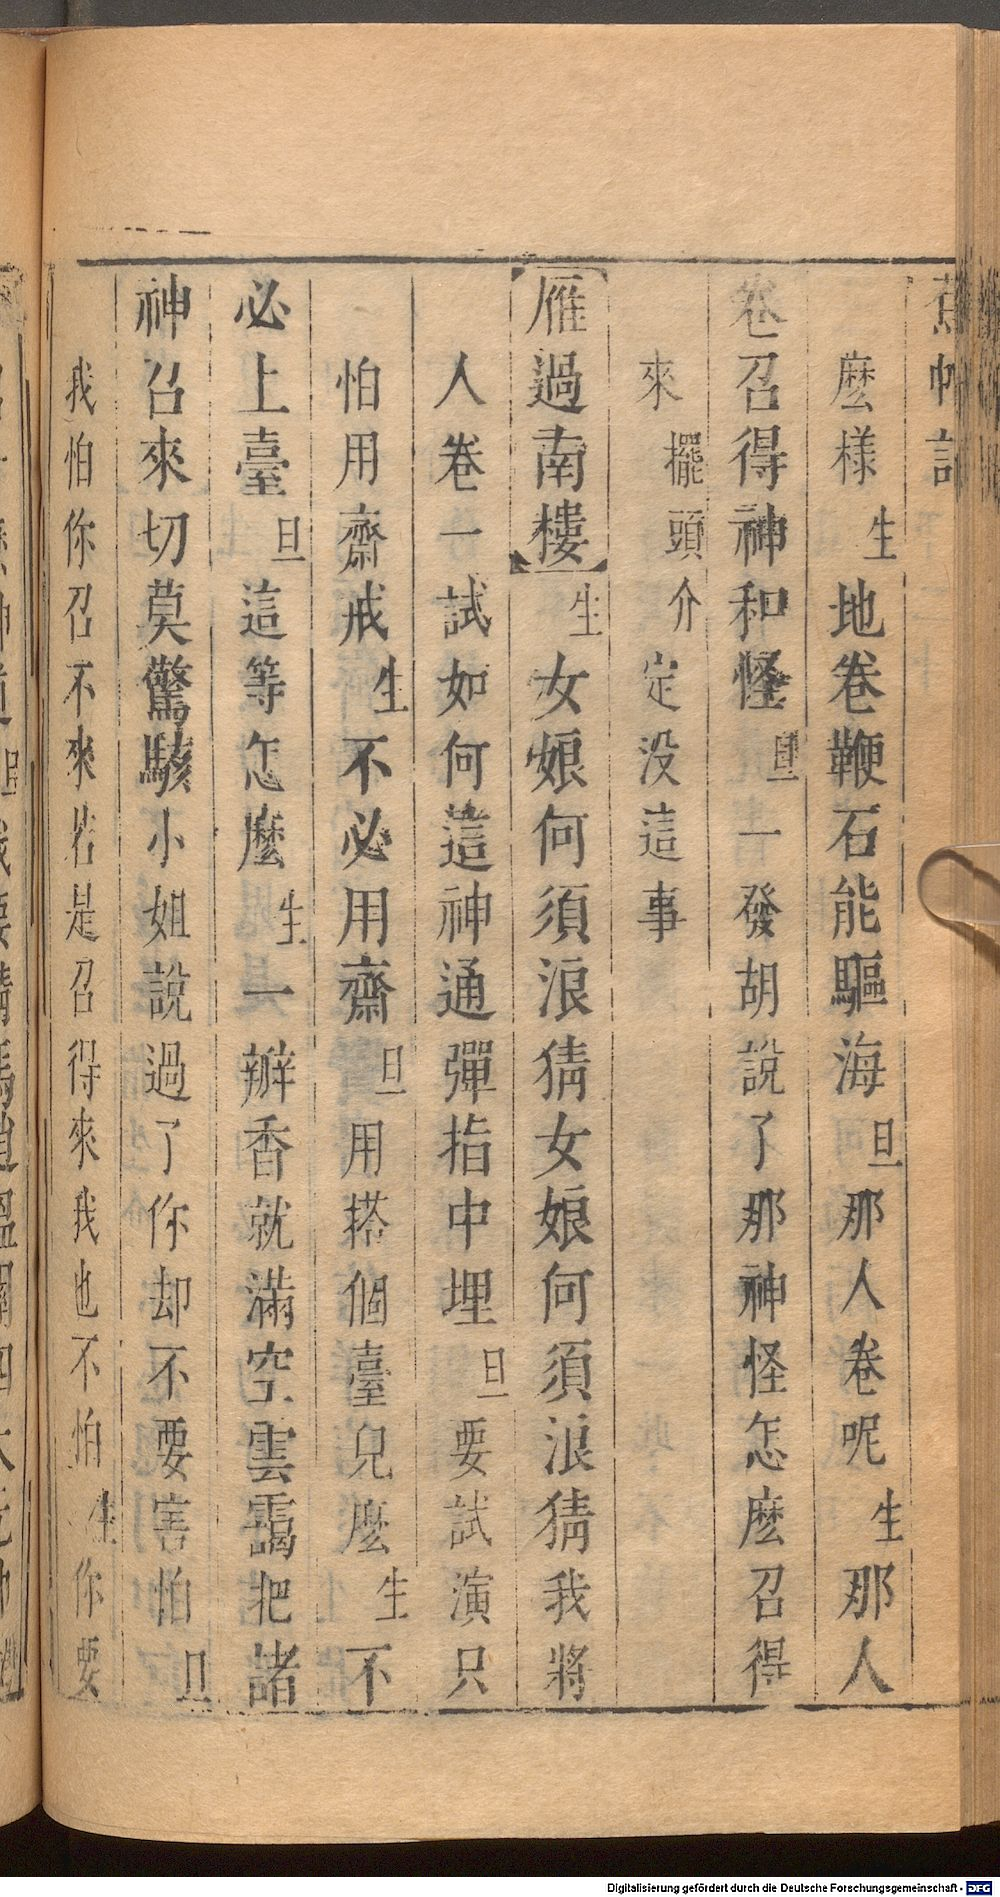 蕉帕記
麽樣生地卷鞭石能驅海旦那人卷呢生那人
卷召得神和怪旦一發胡說了那神怪怎麽召得
來擺頭介定没這事
雁過南樓生女娘何須浪猜女娘何須浪猜我將
人卷一試如何這神通彈指中埋旦要試演只
怕用齋戒生不必用齋旦用搭個臺兒麽生不
必上臺旦這等怎麽生一瓣香就滿空雲靄把諸
神召來切莫驚駭小姐說過了你却不要害怕旦
我怕你召不來若是召得來我也不怕生你要
Digitalisierung gefördert durch die Deutsche Forschungsgemeinschaft - DFG